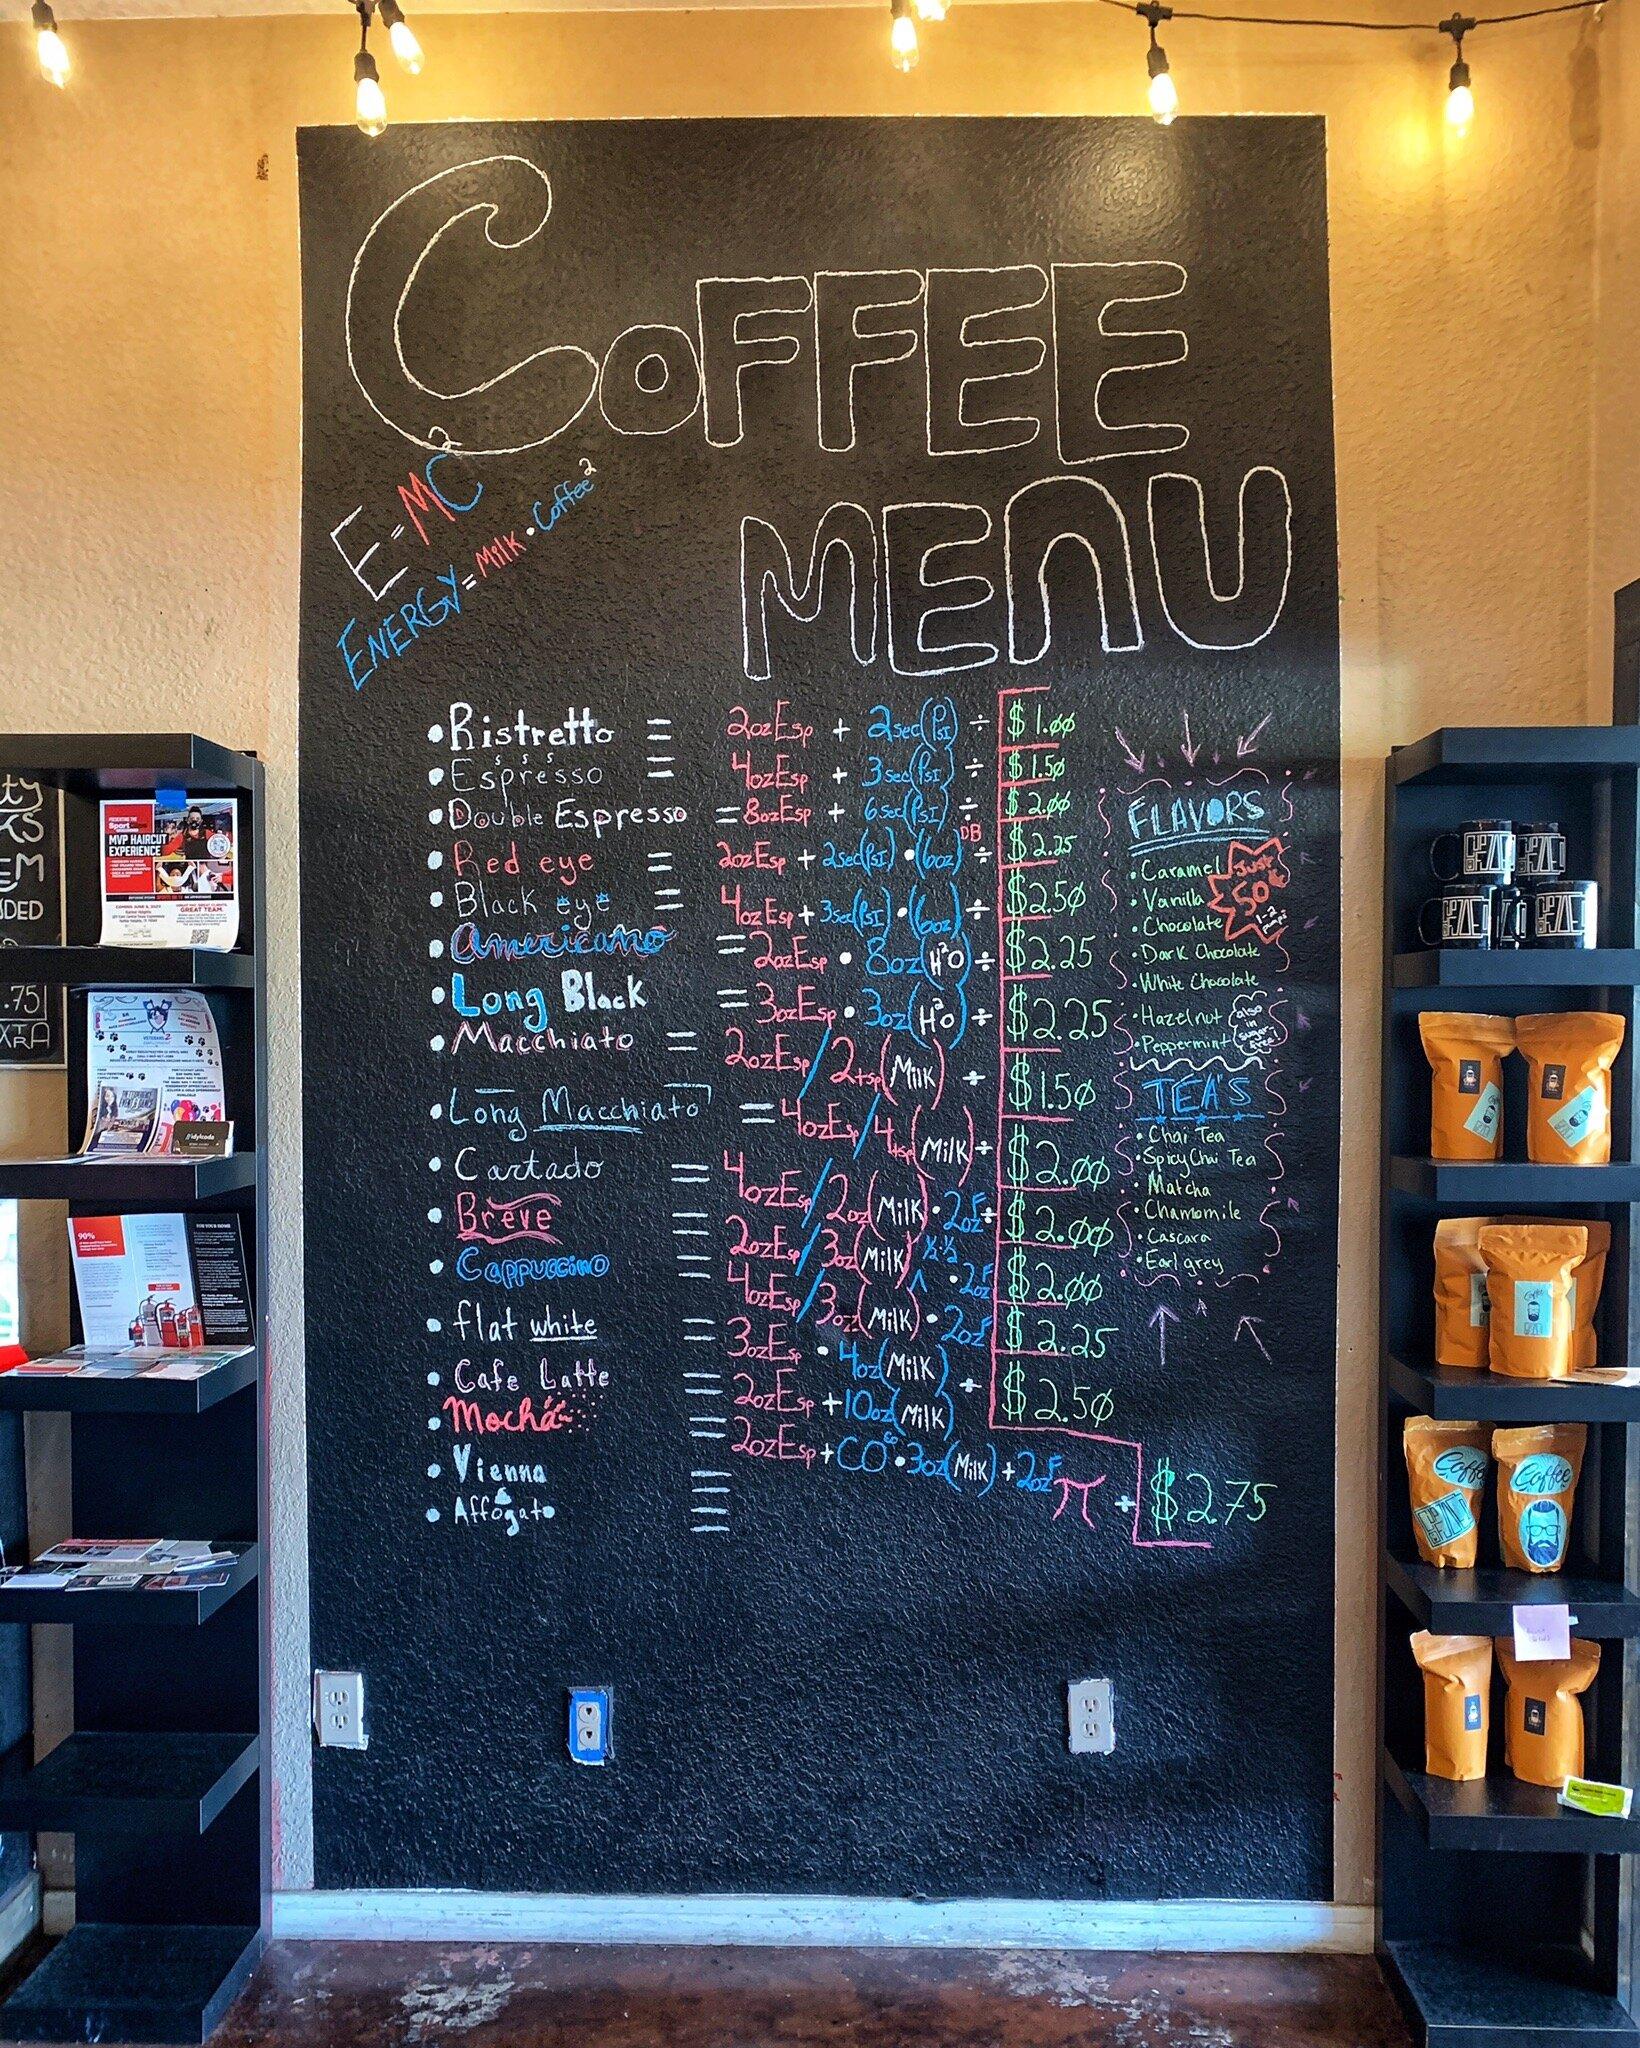 COFFEE
MENU
E=MC²
ENERGY=Milk•Coffee²
•Ristretto = 2ozEsp + 2sec(PSI) ÷ $1.00
•Espresso = 4ozEsp + 3sec(PSI) ÷ $1.50
•Double Espresso = 8ozEsp + 6sec(PSI) ÷ $2.00
•Red eye = 2ozEsp + 2sec(PSI)•(6oz) DB ÷ $2.25
•Black eye = 4ozEsp + 3sec(PSI)•(6oz) ÷ $2.50
•Americano = 2ozEsp • 8oz(H²O) ÷ $2.25
•Long Black = 3ozEsp • 3oz(H²O) ÷ $2.25
•Macchiato = 2ozEsp / 2tsp(Milk) ÷ $1.50
•Long Macchiato = 4ozEsp / 4tsp(Milk) ÷ $2.00
•Cortado = 4ozEsp / 2oz(Milk)•2ozF ÷ $2.00
•Breve = 2ozEsp / 3oz(Milk) ½·½ ^ •2ozF $2.00
•Cappuccino = 4ozEsp / 3oz(Milk)•2ozF $2.25
•flat white = 3ozEsp • 4oz(Milk) ÷ $2.50
•Cafe Latte = 2ozEsp + 10oz(Milk)
•Mocha = 2ozEsp + CO •3oz(Milk) + 2ozF π ÷ $2.75
•Vienna =
•Affogato =
FLAVORS
•Caramel
•Vanilla
•Chocolate
•Dark Chocolate
•White Chocolate
•Hazelnut
•Peppermint
Just
50¢
1-2
pumps
also
in
sugar
free
TEA'S
•Chai Tea
•Spicy Chai Tea
•Matcha
•Chamomile
•Cascara
•Earl grey
PRESENTING THE
MVP HAIRCUT
EXPERIENCE
GREAT TEAM.
VETERANS
idylcode
90%
FOR YOUR HOME
.75
Coffee
Coffee
Coffee